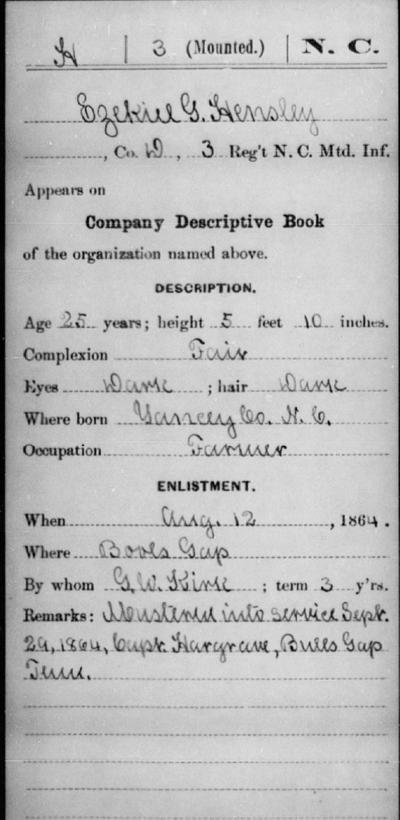 H | 3 (Mounted.) | N. C.
Ezekiel G. Hensley
, Co. D , 3 Reg't N. C. Mtd. Inf.
Appears on
Company Descriptive Book
of the organization named above.
DESCRIPTION.
Age 25 years; height 5 feet 10 inches.
Complexion Fair
Eyes Dark ; hair Dark
Where born Yancey Co. N. C.
Occupation Farmer
ENLISTMENT.
When Aug. 12 , 1864.
Where Bools Gap
By whom G. W. Kirk ; term 3 y'rs.
Remarks: Mustered into service Sept.
29, 1864, Capt. Hargrave, Bulls Gap
Tenn.